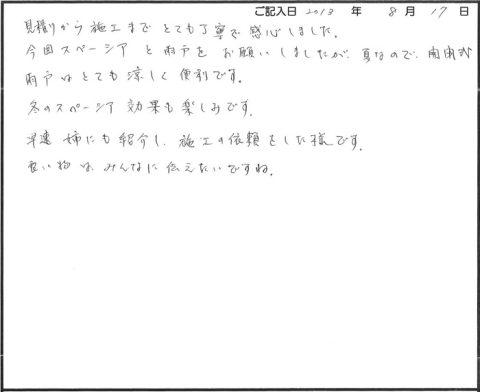 ご記入日 2013 年 8 月 17 日
見積りから施工まで とても丁寧で 感心しました。
今回スペーシア と雨戸を お願いしましたが、夏なので、開閉式
雨戸はとても 涼しく 便利です。
冬のスペーシア 効果も楽しみです。
早速 姉にも紹介し、施工の依頼をした様です。
良い物は みんなに 伝えたいですね。